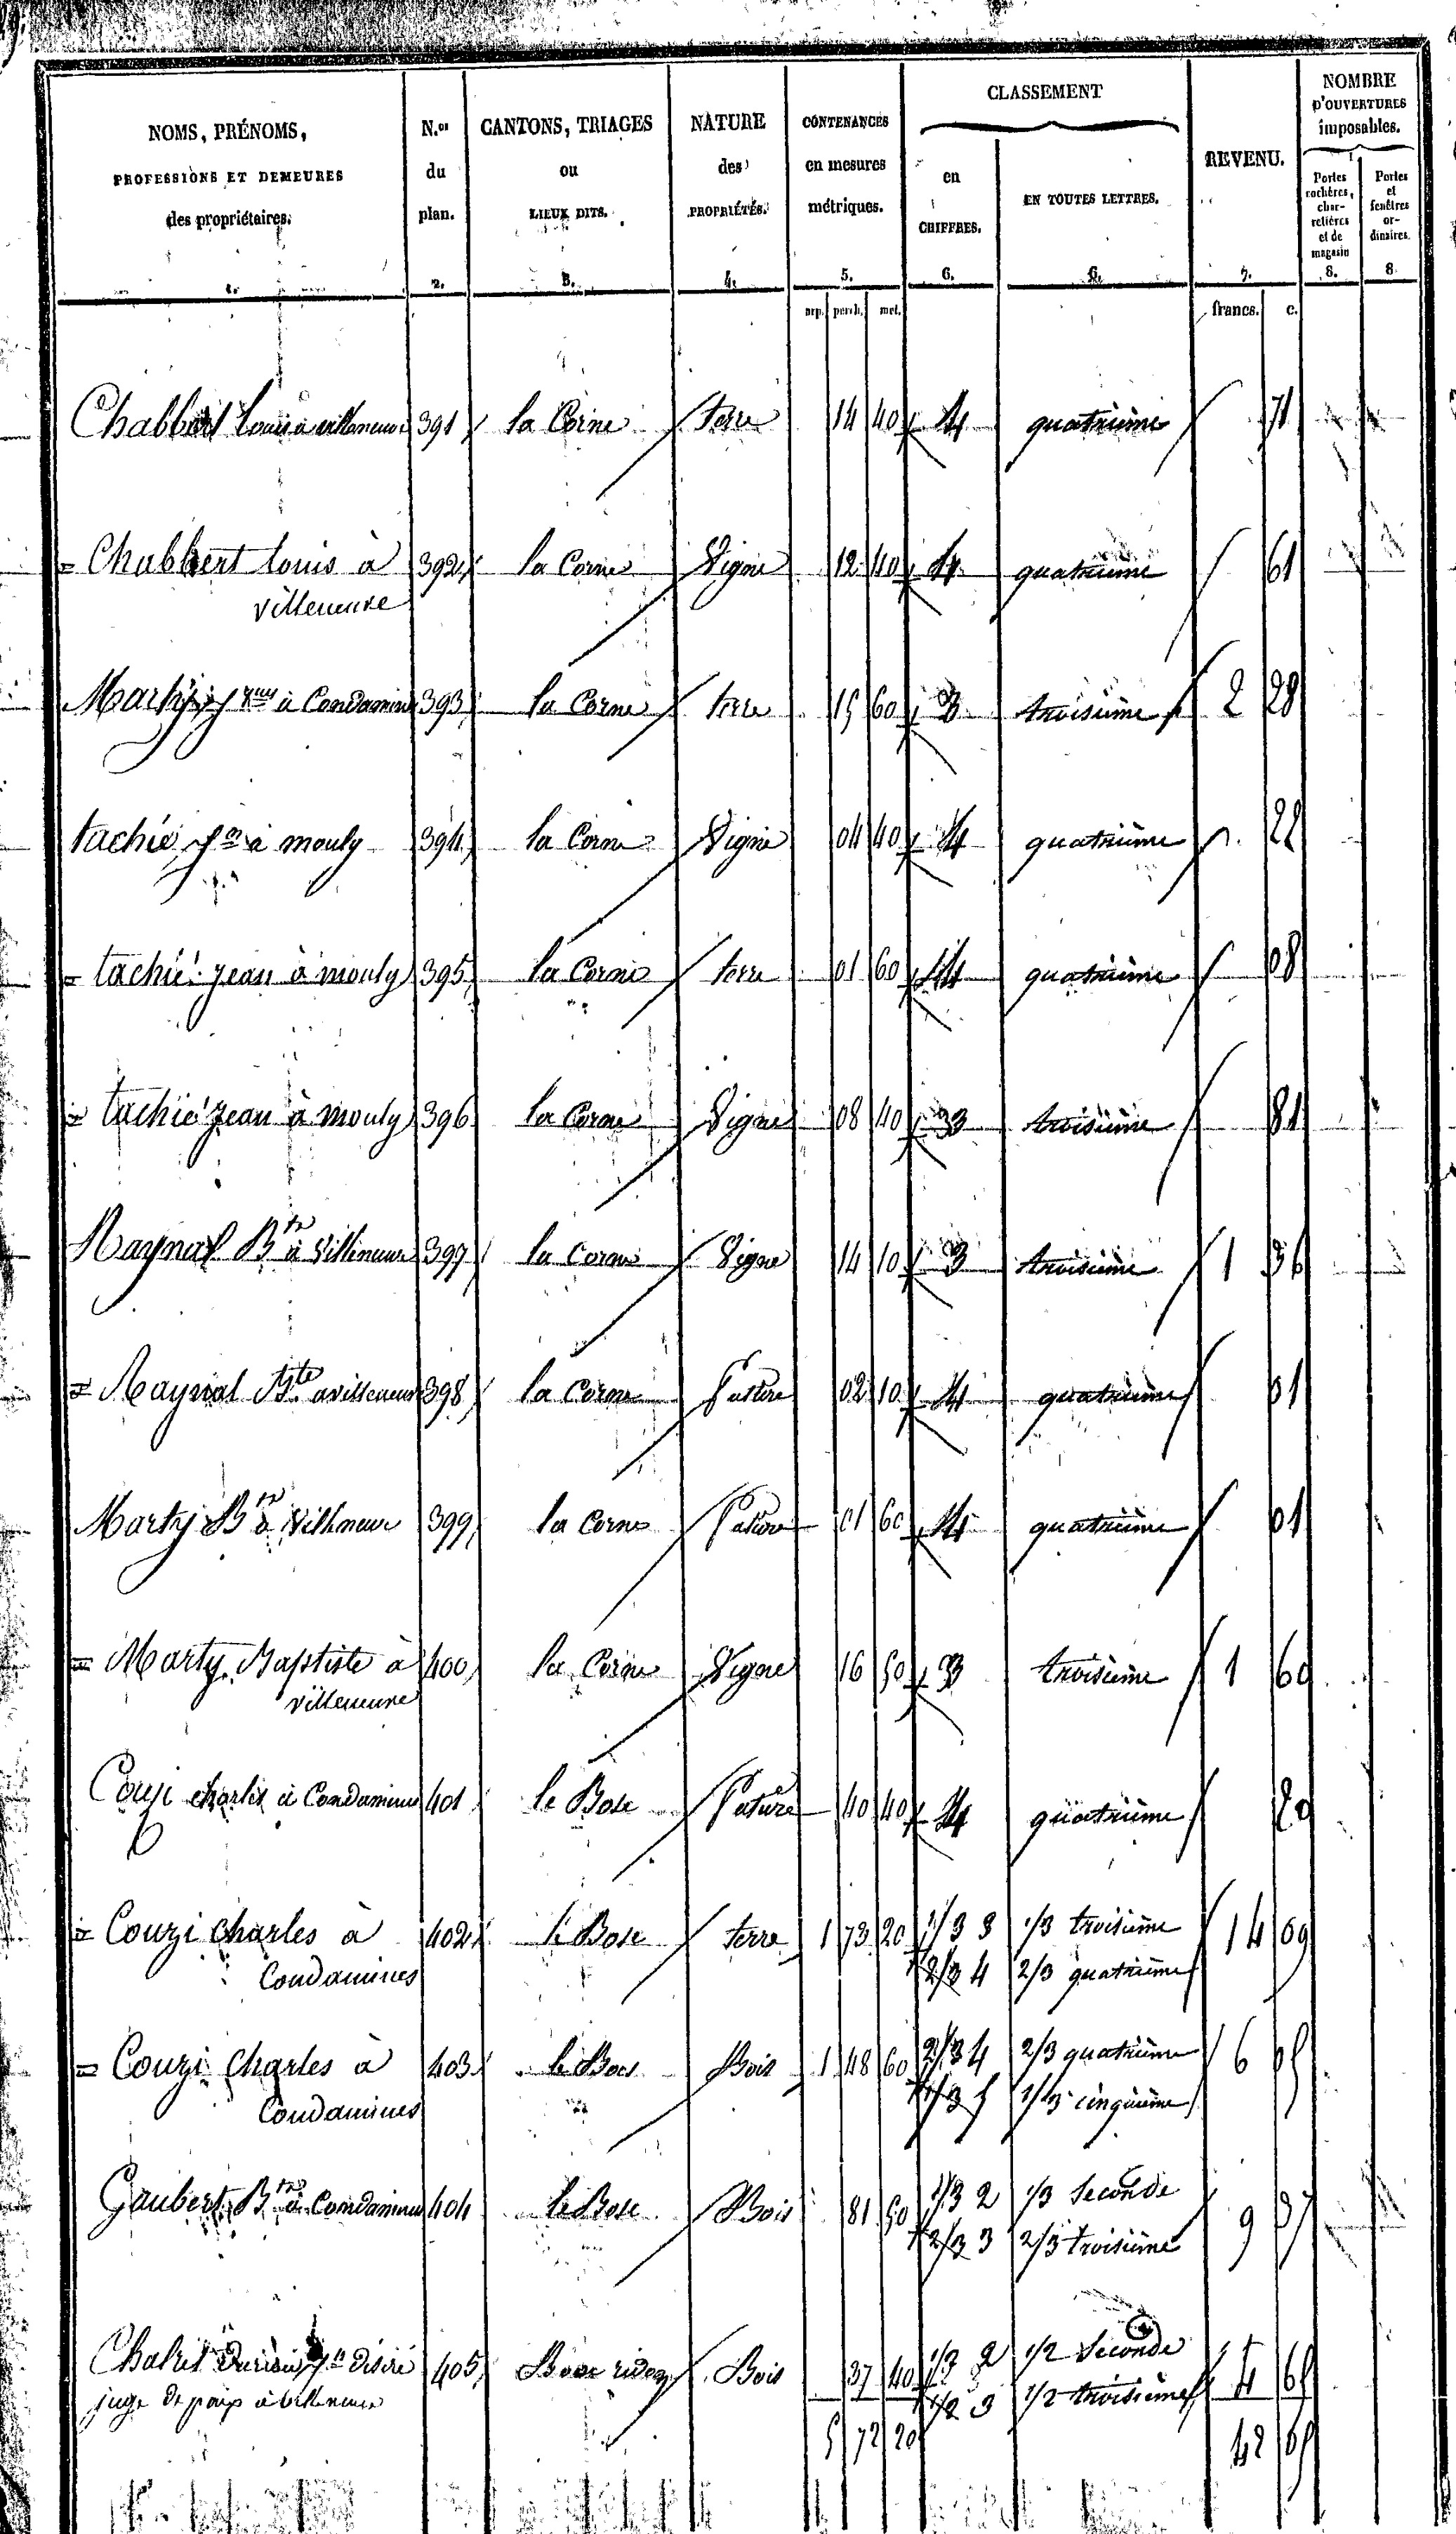 NOMS, PRÉNOMS, PROFESSIONS ET DEMEURES des propriétaires. 1.
N.os du plan. 2.
CANTONS, TRIAGES ou LIEUX DITS. 3.
NATURE des PROPRIÉTÉS. 4.
CONTENANCES en mesures métriques. 5.
CLASSEMENT
en CHIFFRES. 6.
EN TOUTES LETTRES. 6.
REVENU. 7.
NOMBRE D'OUVERTURES imposables.
Portes cochères, charretières et de magasin 8.
Portes et fenêtres ordinaires. 8.
arp. perch. met. francs. c.
Chabbert Louis à villeneuve 391 la Corne terre 14 40 4 quatrième 71
= Chabbert Louis à villeneuve 392 la Corne Vigne 12 40 4 quatrième 61
Marty à Condamines 393 la Corne terre 15 60 3 troisième 2 28
tachié Jn à mouly 394 la Corne Vigne 04 40 4 quatrième 22
= tachié jean à mouly 395 la Corne terre 01 60 4 quatrième 08
= tachié jean à mouly 396 la Corne Vigne 08 40 3 troisième 81
Raynal Bte à Villeneuve 397 la Corne Vigne 14 10 3 troisième 1 36
= Raynal Bte à villeneuve 398 la Corne Pature 02 10 4 quatrième 01
Marty Bte à Villeneuve 399 la Corne Pature 01 60 4 quatrième 01
= Marty Baptiste à villeneuve 400 la Corne Vigne 16 50 3 troisième 1 60
Couzi charles à Condamines 401 le Bosc Pature 40 40 4 quatrième 20
= Couzi charles à Condamines 402 le Bosc terre 1 73 20 1/3 3 1/3 troisième 14 09
2/3 4 2/3 quatrième
= Couzi Charles à Condamines 403 le Bosc Bois 1 48 60 2/3 4 2/3 quatrième 6 05
1/3 5 1/3 cinquième
Gaubert Bte à Condamines 404 le Bosc Bois 81 50 1/3 2 1/3 Seconde 9 37
2/3 3 2/3 troisième
Chabrit Jn Désiré 405 Bois 37 40 2 1/2 Seconde 4 65
juge de paix à villeneuve 1/2 3 1/2 troisième
5 72 20 42 65